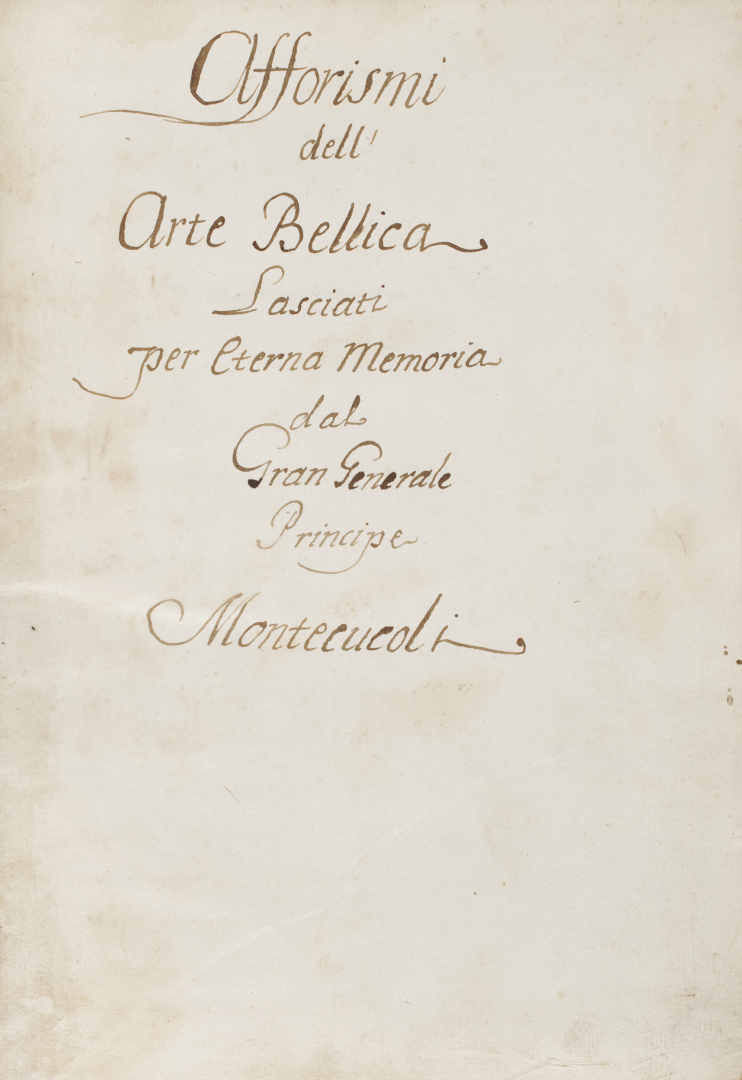 Afforismi
dell'
Arte Bellica
Lasciati
per Eterna Memoria
dal
Gran Generale
Principe
Montecucoli